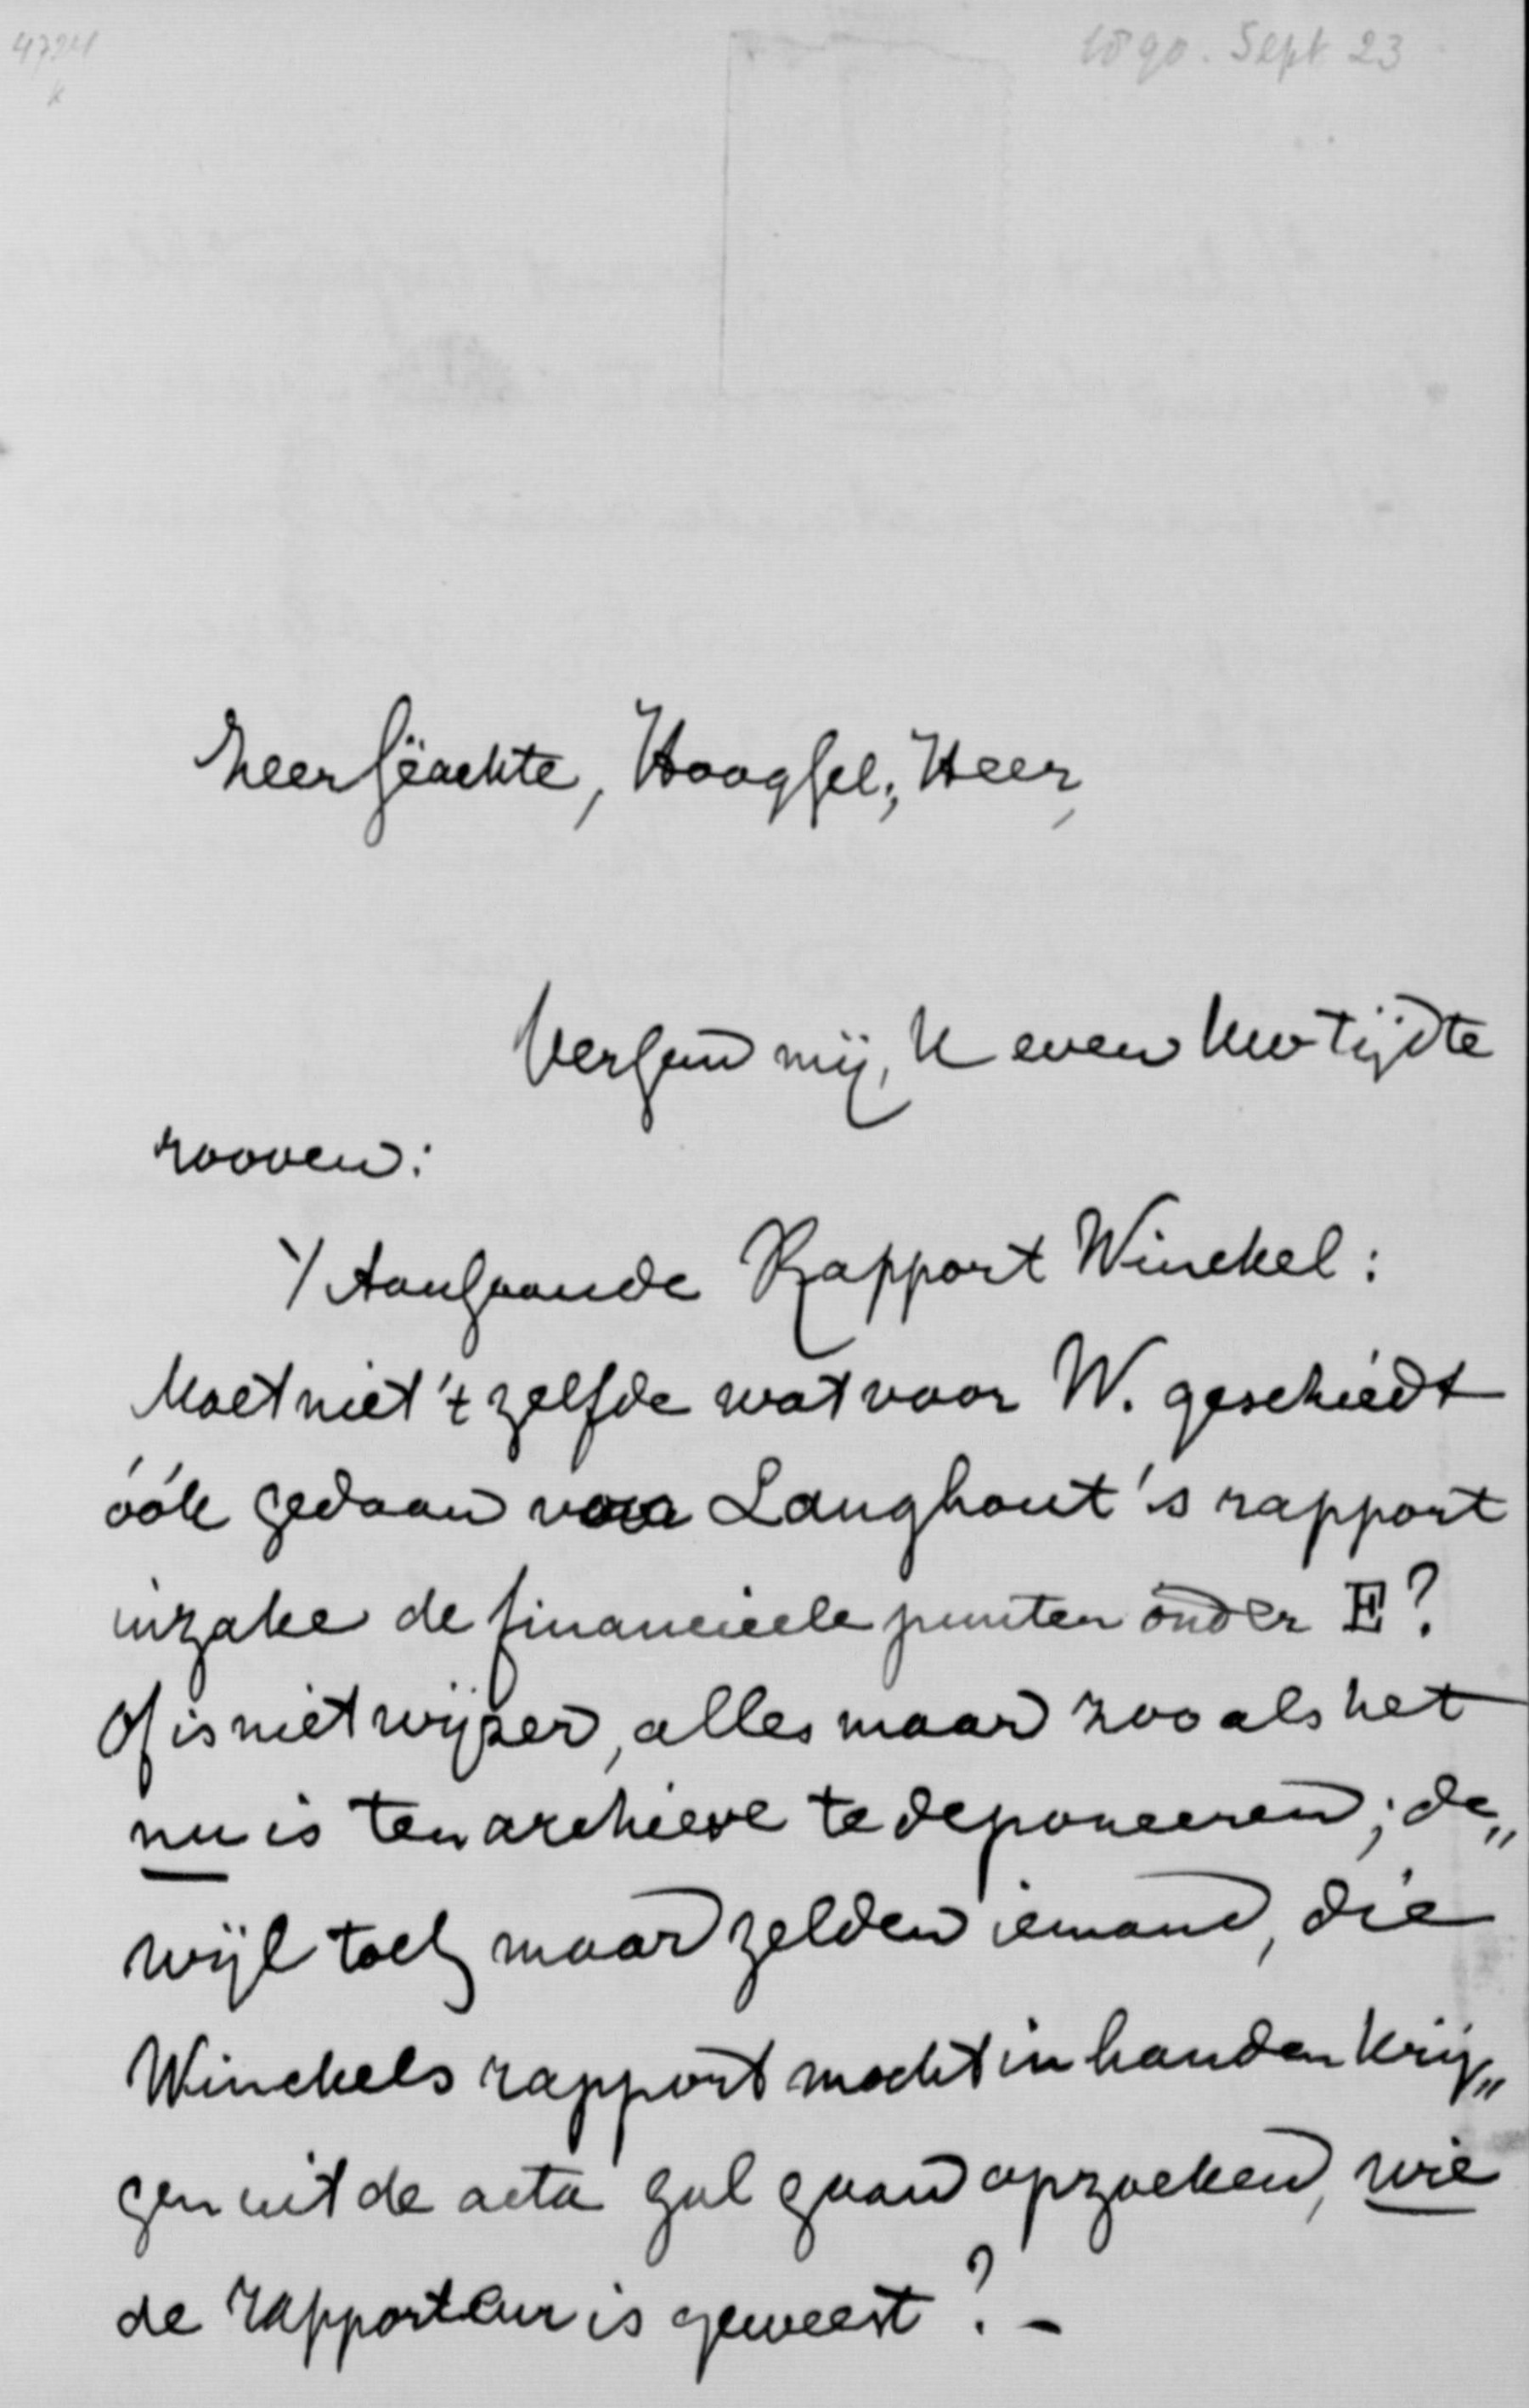 4724
1890. Sept 23
Zeer Geachte, HoogGel., Heer,
Vergun mij, U even Uw tijd te
rooven:
1/ Aangaande Rapport Winckel:
Moet niet 't zelfde wat voor W. geschiedt
óók gedaan voor Langhout's rapport
inzake de financieele punten onder E?
Of is niet wijzer, alles maar zoo als het
nu is ten archieve te deponeeren; de„
wijl toch maar zelden iemand, die
Winckels rapport mocht in handen krij„
gen uit de acta zal gaan opzoeken, wie
de rapporteur is geweest? -